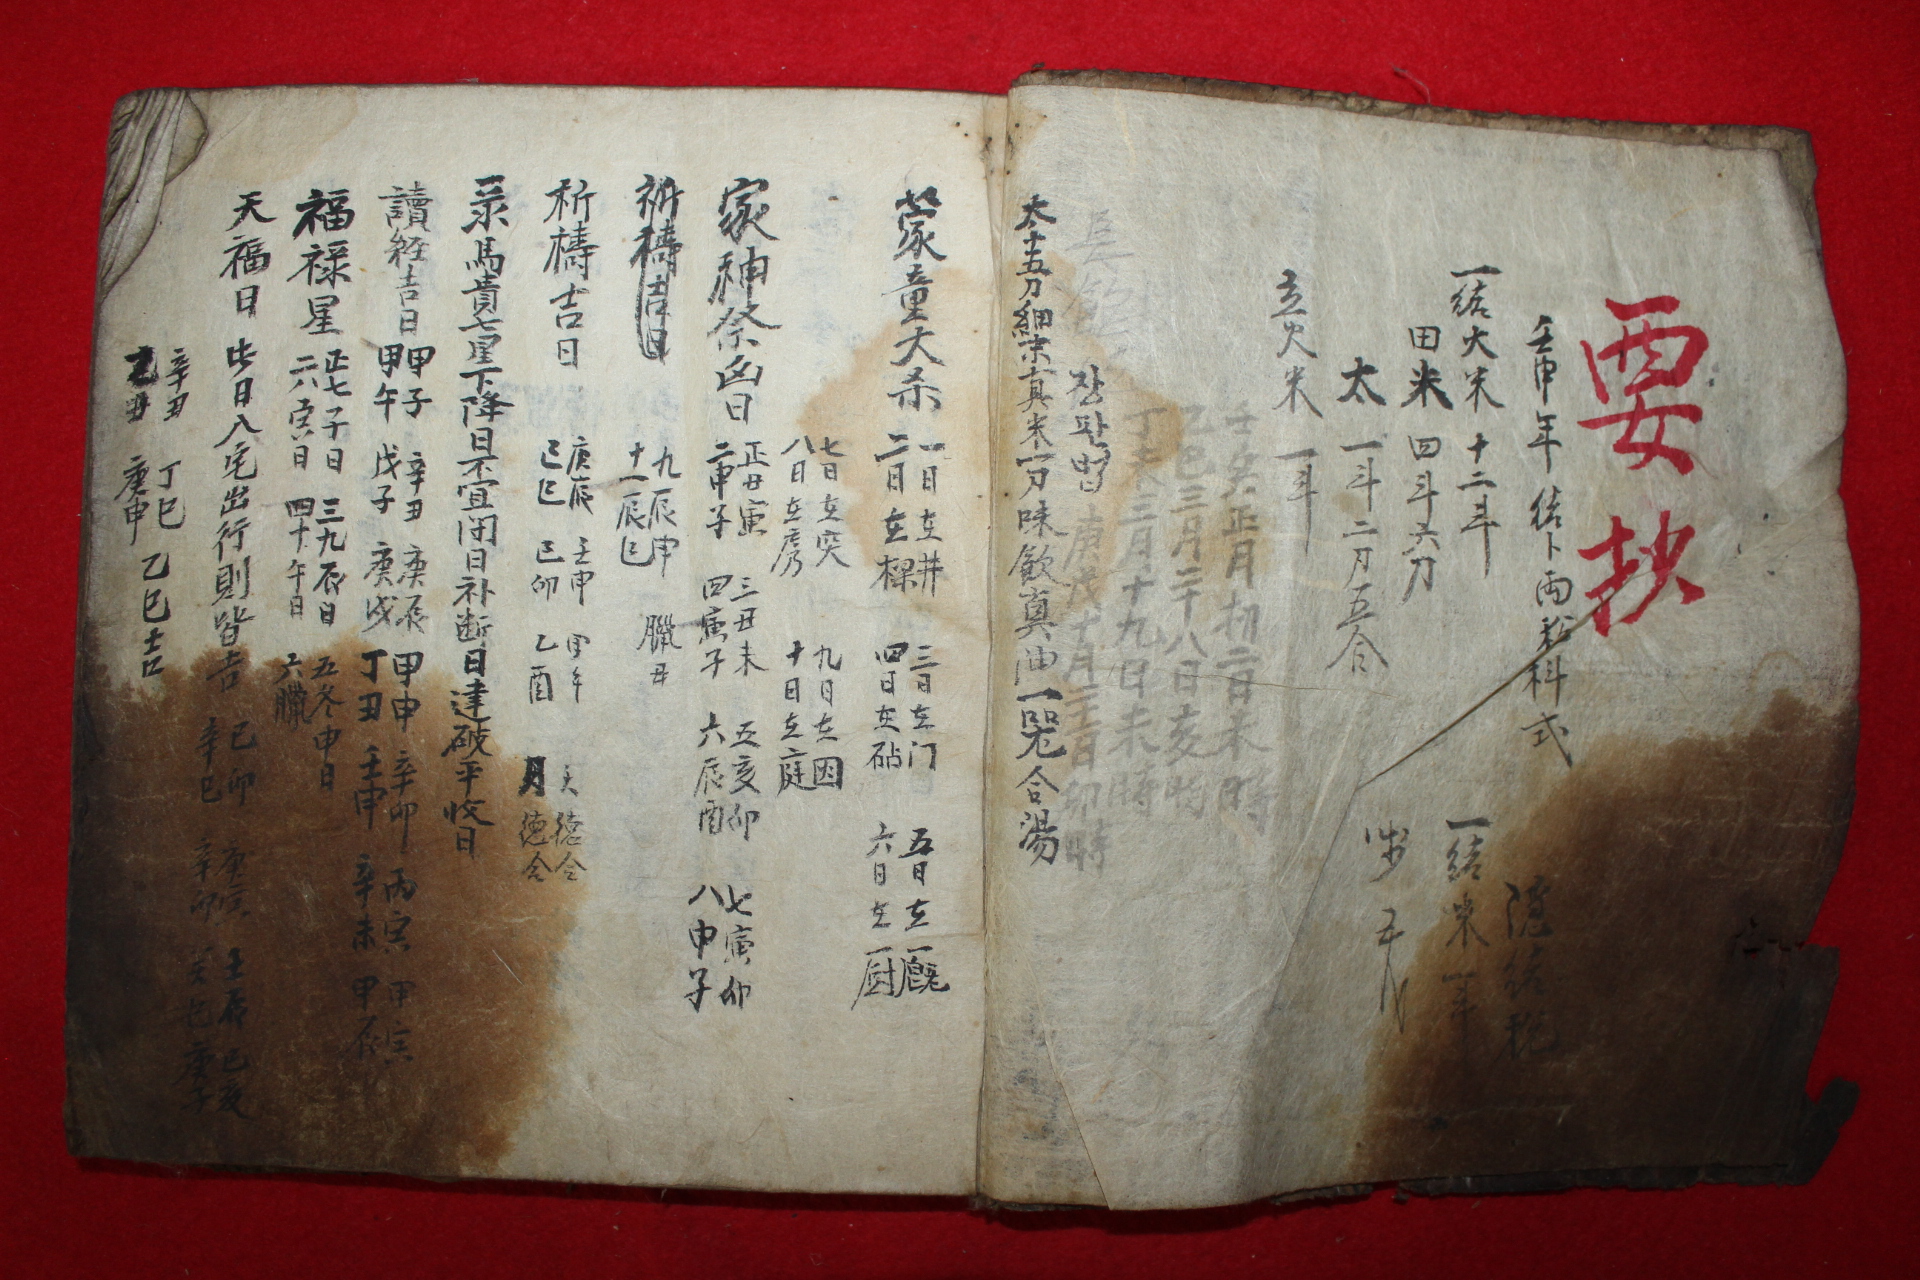 要抄
壬申年 結卜兩稅科式
隱結稅
一結大米 十二斗
一結米一斗
田米 四斗六刀
太 一斗二刀五合
立火米 一斗
壬癸正月初二日未時
乙巳三月二十八日亥時
丁未三月十九日未時
장판법 庚戌十月二十日卯時
太十五刀細末真米一刀味飲真油一器合湯
蒙童大杀 一日在井 三日在门 五日在
二日在樑 四日在砧 六日在厨
七日在突 九日在因
八日在房 十日在庭
家神祭凶日 正丑寅 三丑未 五亥卯 七寅卯
二申子 四寅子 六辰酉 八申子
祈禱吉日 九辰申 臘丑
十一辰巳
祈禱吉日 庚辰 壬申 甲午 天德合
己巳 己卯 乙酉 月德合
彔馬貴七星下降日不宜闭日补断日建破平收日
讀経吉日 甲子 辛丑 庚辰 甲申 辛卯 丙寅 甲寅
甲午 戊子 庚戌 丁丑 壬申 辛未 甲辰
福禄星 正七子日 三九辰日 五冬申日
二六寅日 四十午日 六臘
天福日 此日八宅出行則皆吉 己卯 庚寅 壬辰 己亥
辛巳 辛卯 庚子
辛丑 丁巳
乙丑 庚申 乙巳吉